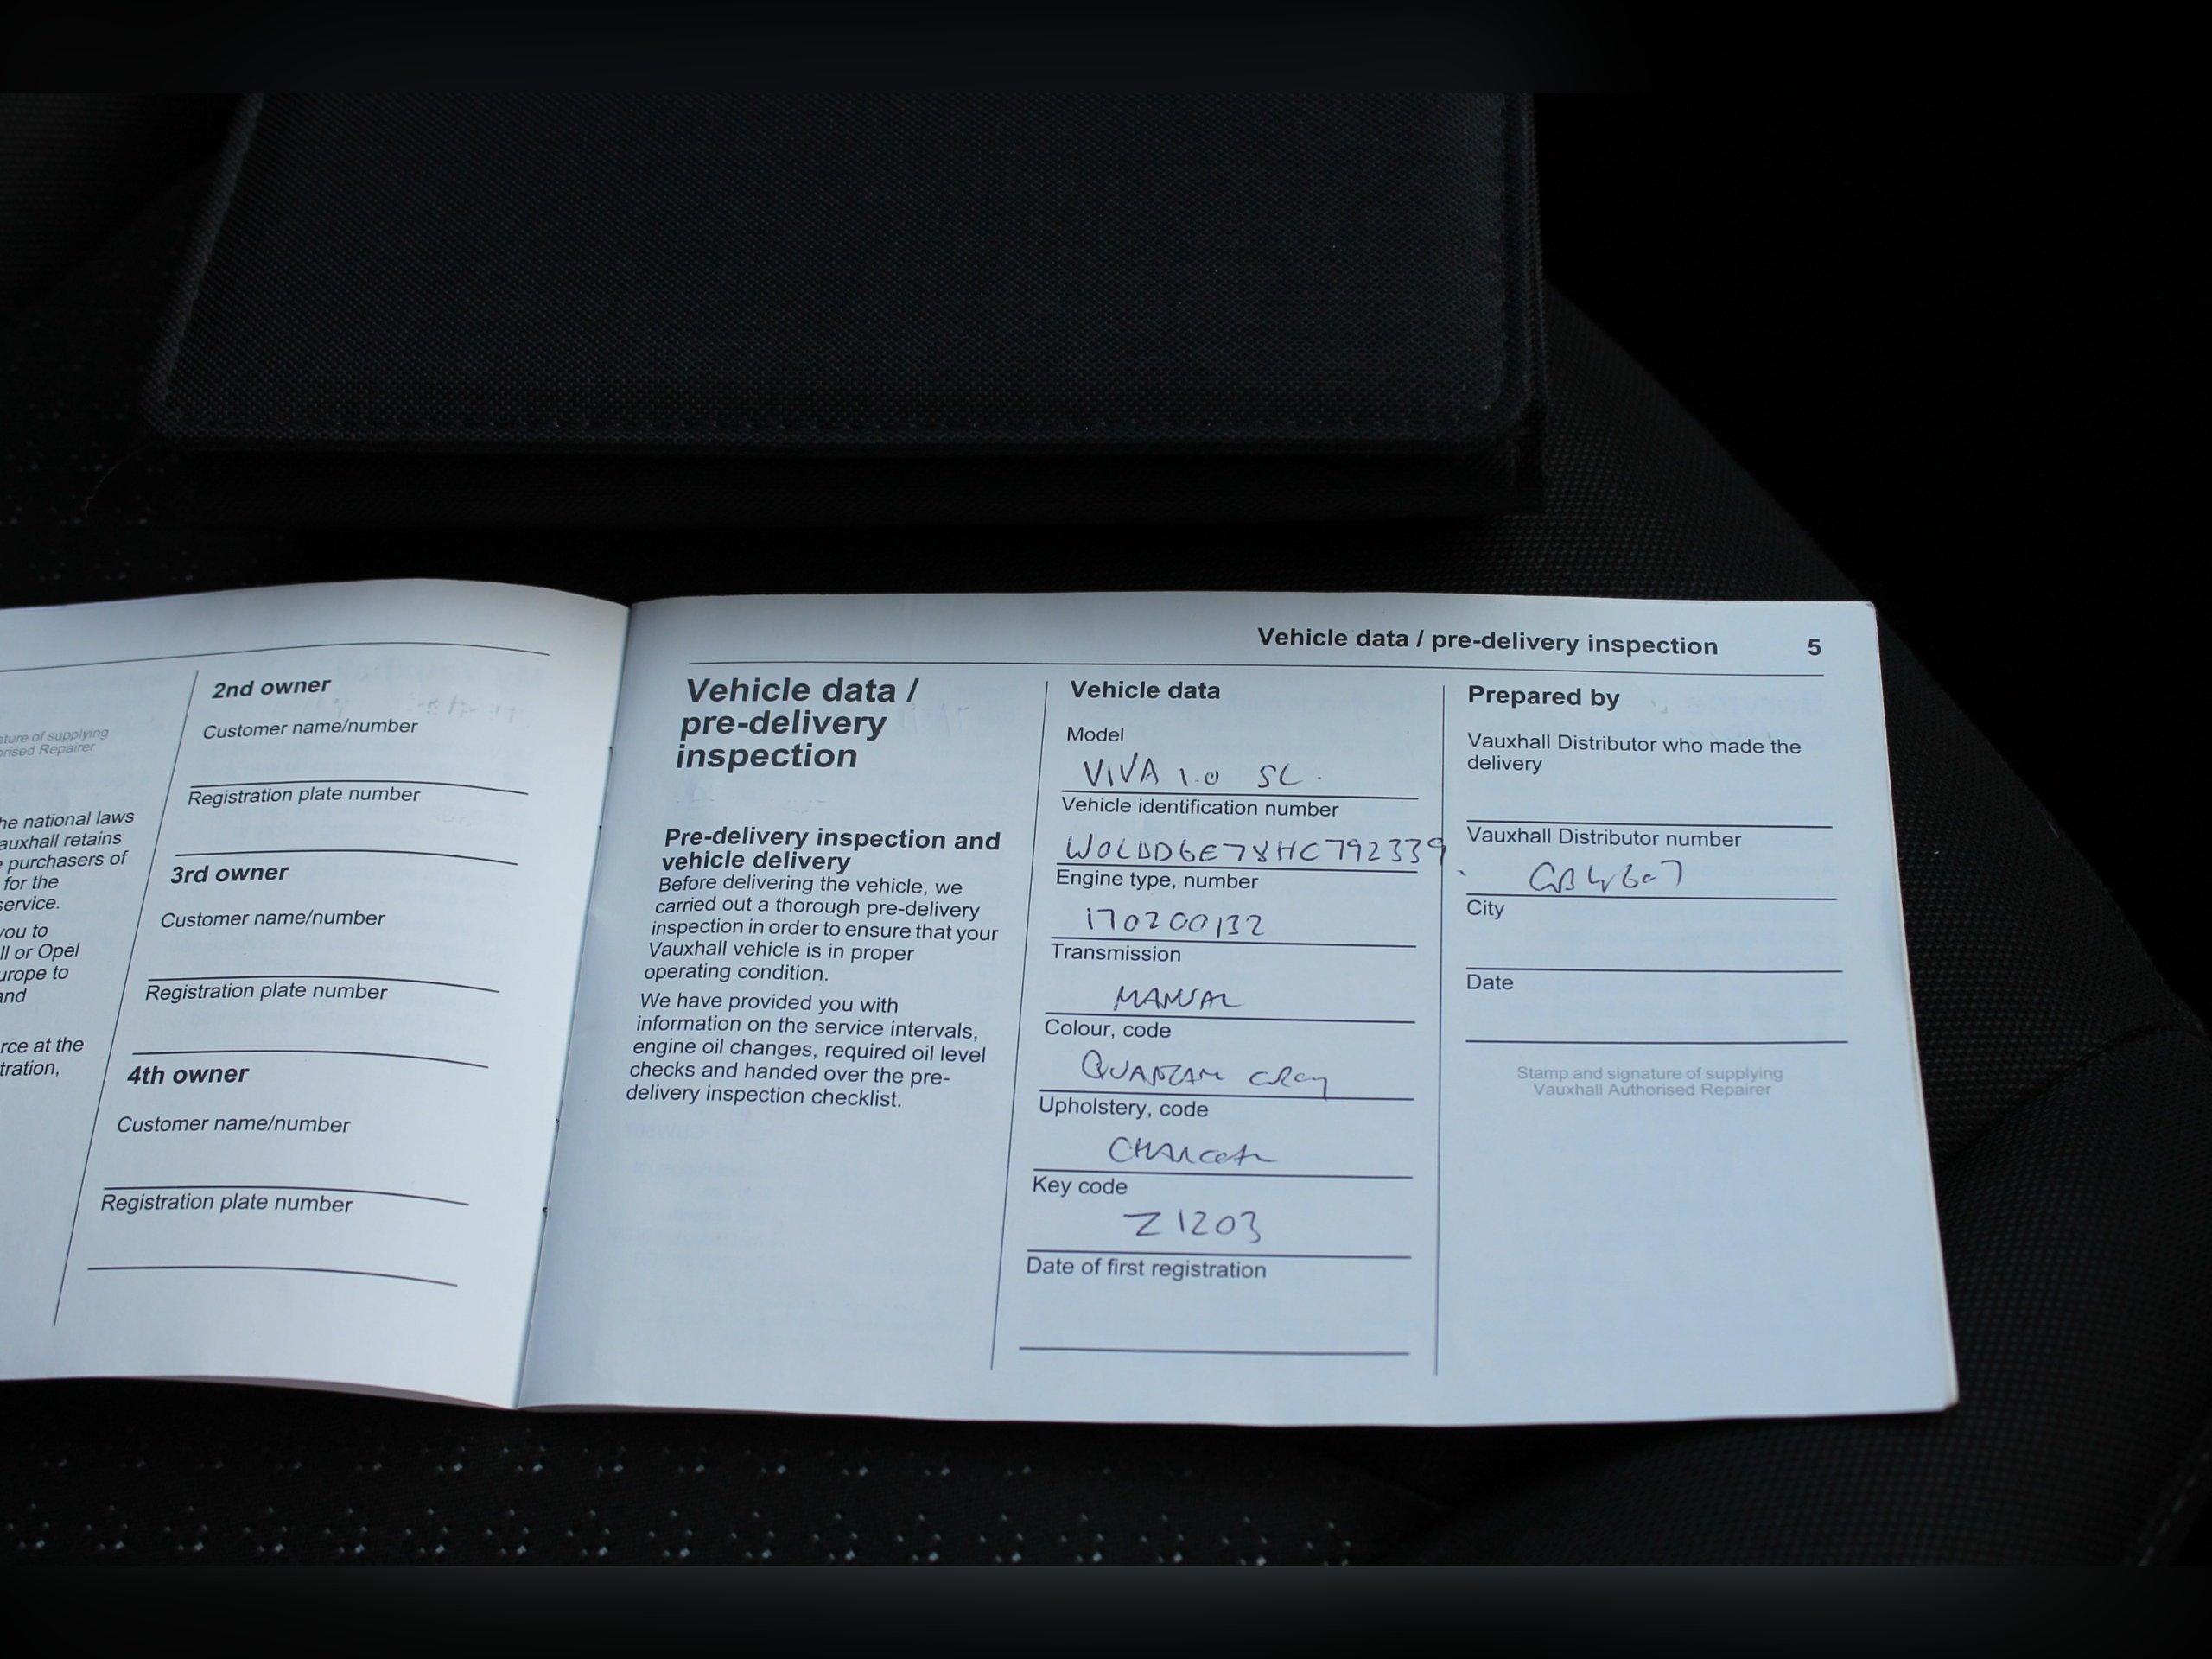 ature of supplying
orised Repairer
he national laws
auxhall retains
purchasers of
for the
service.
you to
ll or Opel
urope to
and
rce at the
tration,
2nd owner
Customer name/number
Registration plate number
3rd owner
Customer name/number
Registration plate number
4th owner
Customer name/number
Registration plate number
Vehicle data / pre-delivery inspection 5
Vehicle data /
pre-delivery
inspection
Pre-delivery inspection and
vehicle delivery
Before delivering the vehicle, we
carried out a thorough pre-delivery
inspection in order to ensure that your
Vauxhall vehicle is in proper
operating condition.
We have provided you with
information on the service intervals,
engine oil changes, required oil level
checks and handed over the pre-
delivery inspection checklist.
Vehicle data
Model
VIVA 1.0 SL.
Vehicle identification number
W0LDD6E78HC792339
Engine type, number
170200132
Transmission
MANUAL
Colour, code
QUANTUM GREY
Upholstery, code
CHARCOAL
Key code
Z1203
Date of first registration
Prepared by
Vauxhall Distributor who made the
delivery
Vauxhall Distributor number
GB4607
City
Date
Stamp and signature of supplying
Vauxhall Authorised Repairer